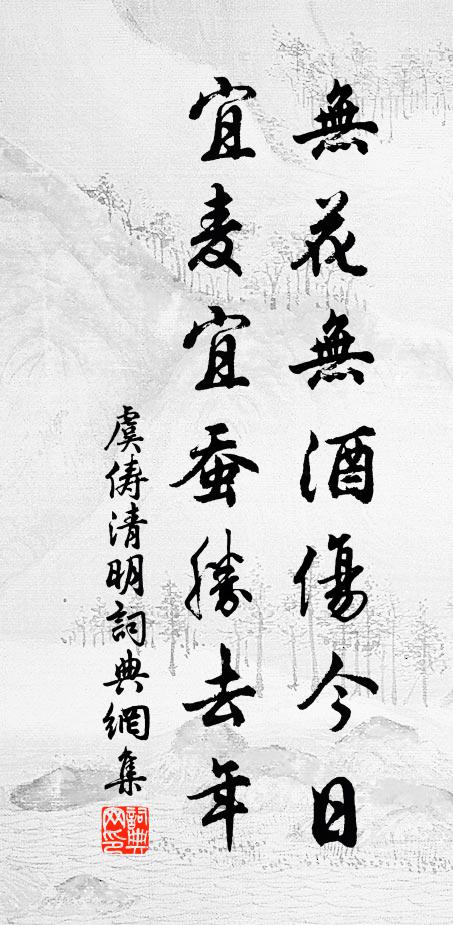 無花無酒傷今日
宜麦宜蚕勝去年
虞俦清明詞典網集
詞典网印